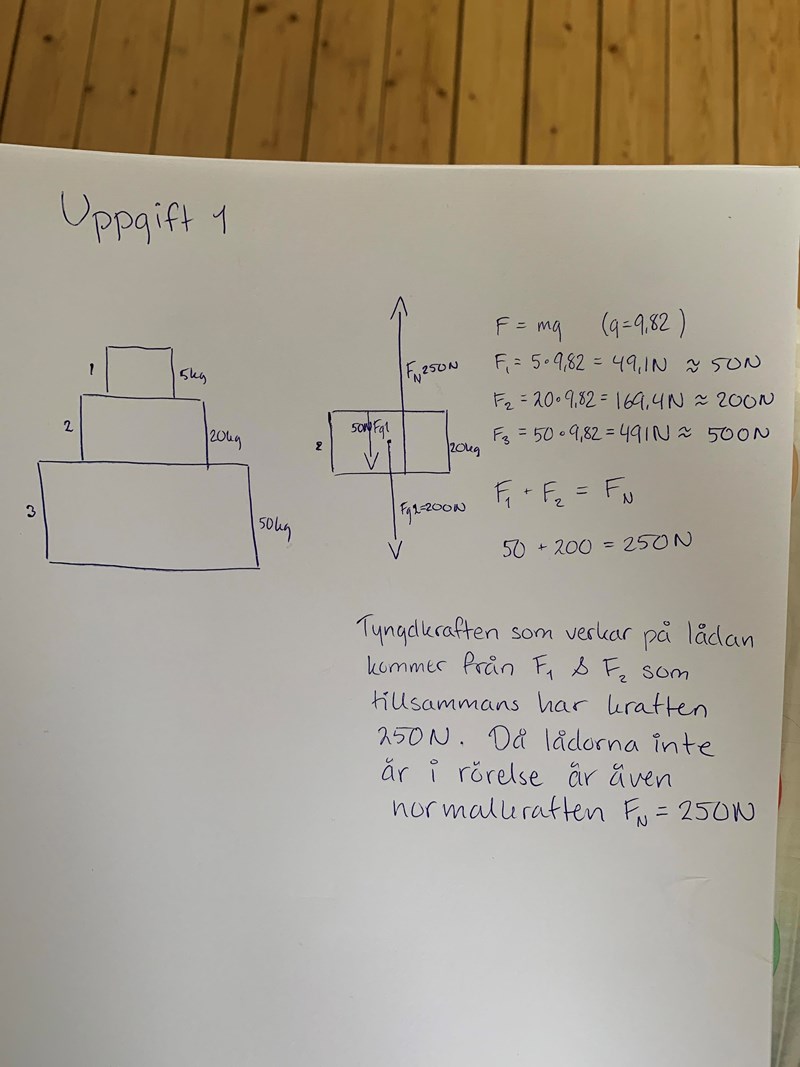 Uppgift 1
1
5kg
2
20kg
3
50kg
F_N 250N
50N Fg1
2
20kg
Fg2=200N
F = mg (g=9,82)
F₁ = 5·9,82 = 49,1N ≈ 50N
F₂ = 20·9,82 = 169,4N ≈ 200N
F₃ = 50·9,82 = 491N ≈ 500N
F₁ + F₂ = F_N
50 + 200 = 250N
Tyngdkraften som verkar på lådan
kommer från F₁ & F₂ som
tillsammans har kraften
250N. Då lådorna inte
är i rörelse är även
normalkraften F_N = 250N